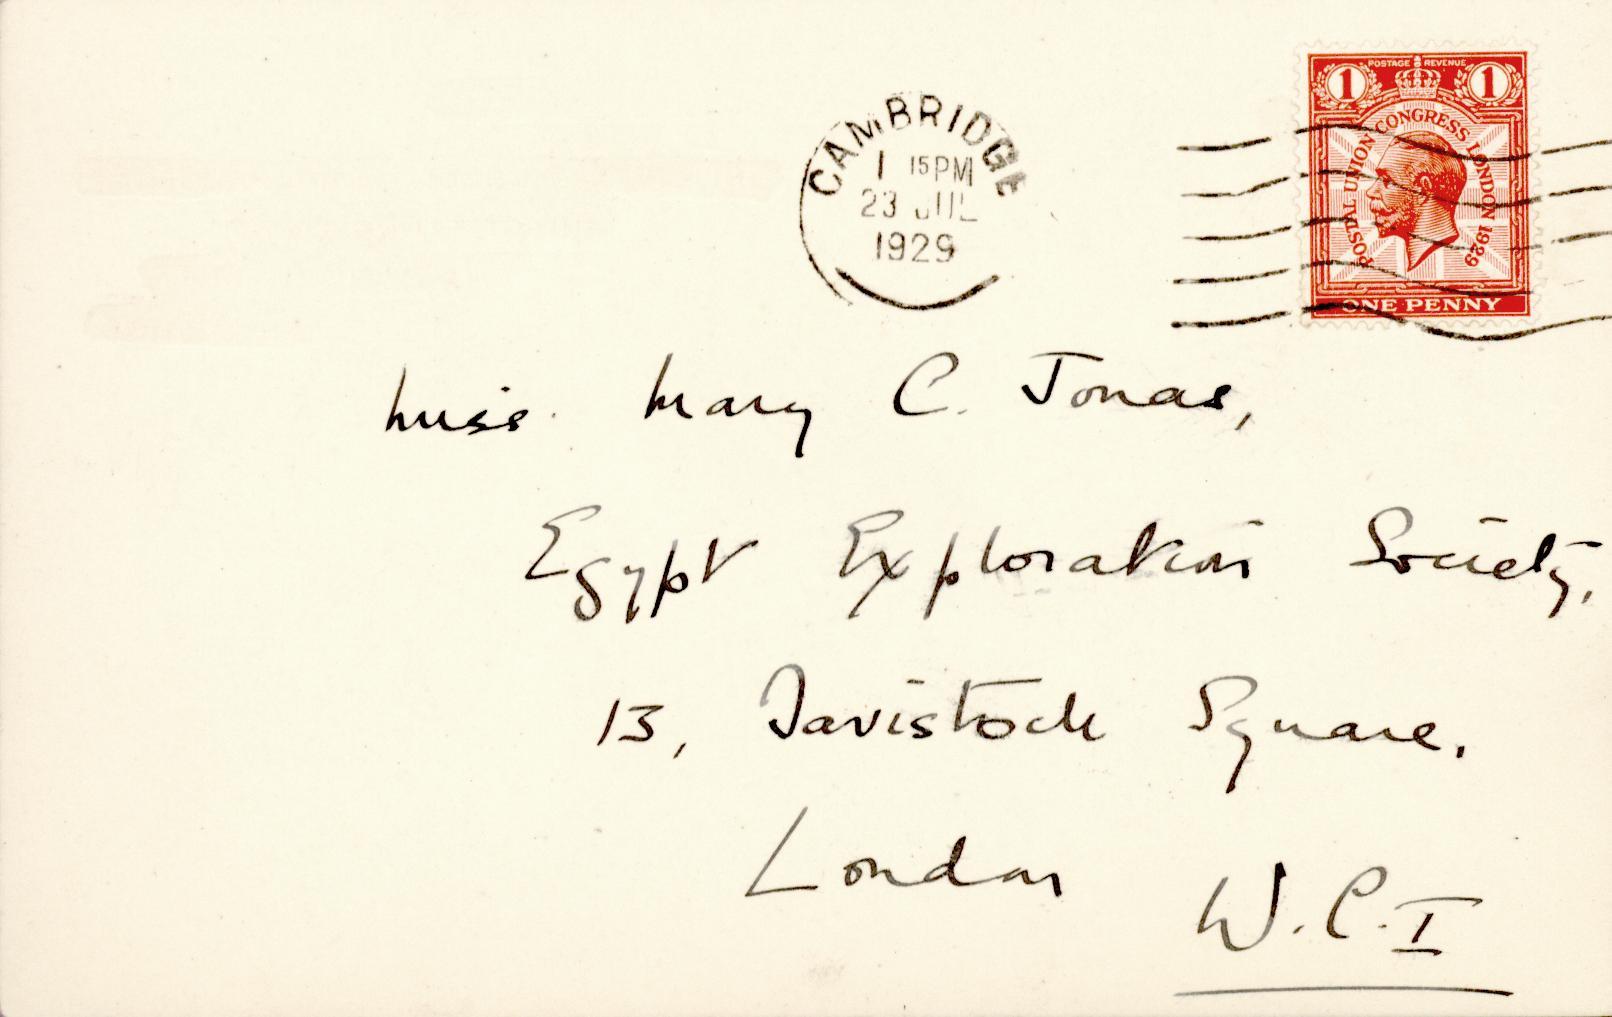 CAMBRIDGE
1 15PM
23 JUL
1929
POSTAGE REVENUE
1 1
POSTAL UNION CONGRESS LONDON 1929
ONE PENNY
Miss Mary C. Jonas,
Egypt Exploration Society,
13, Tavistock Square.
London
W.C.I